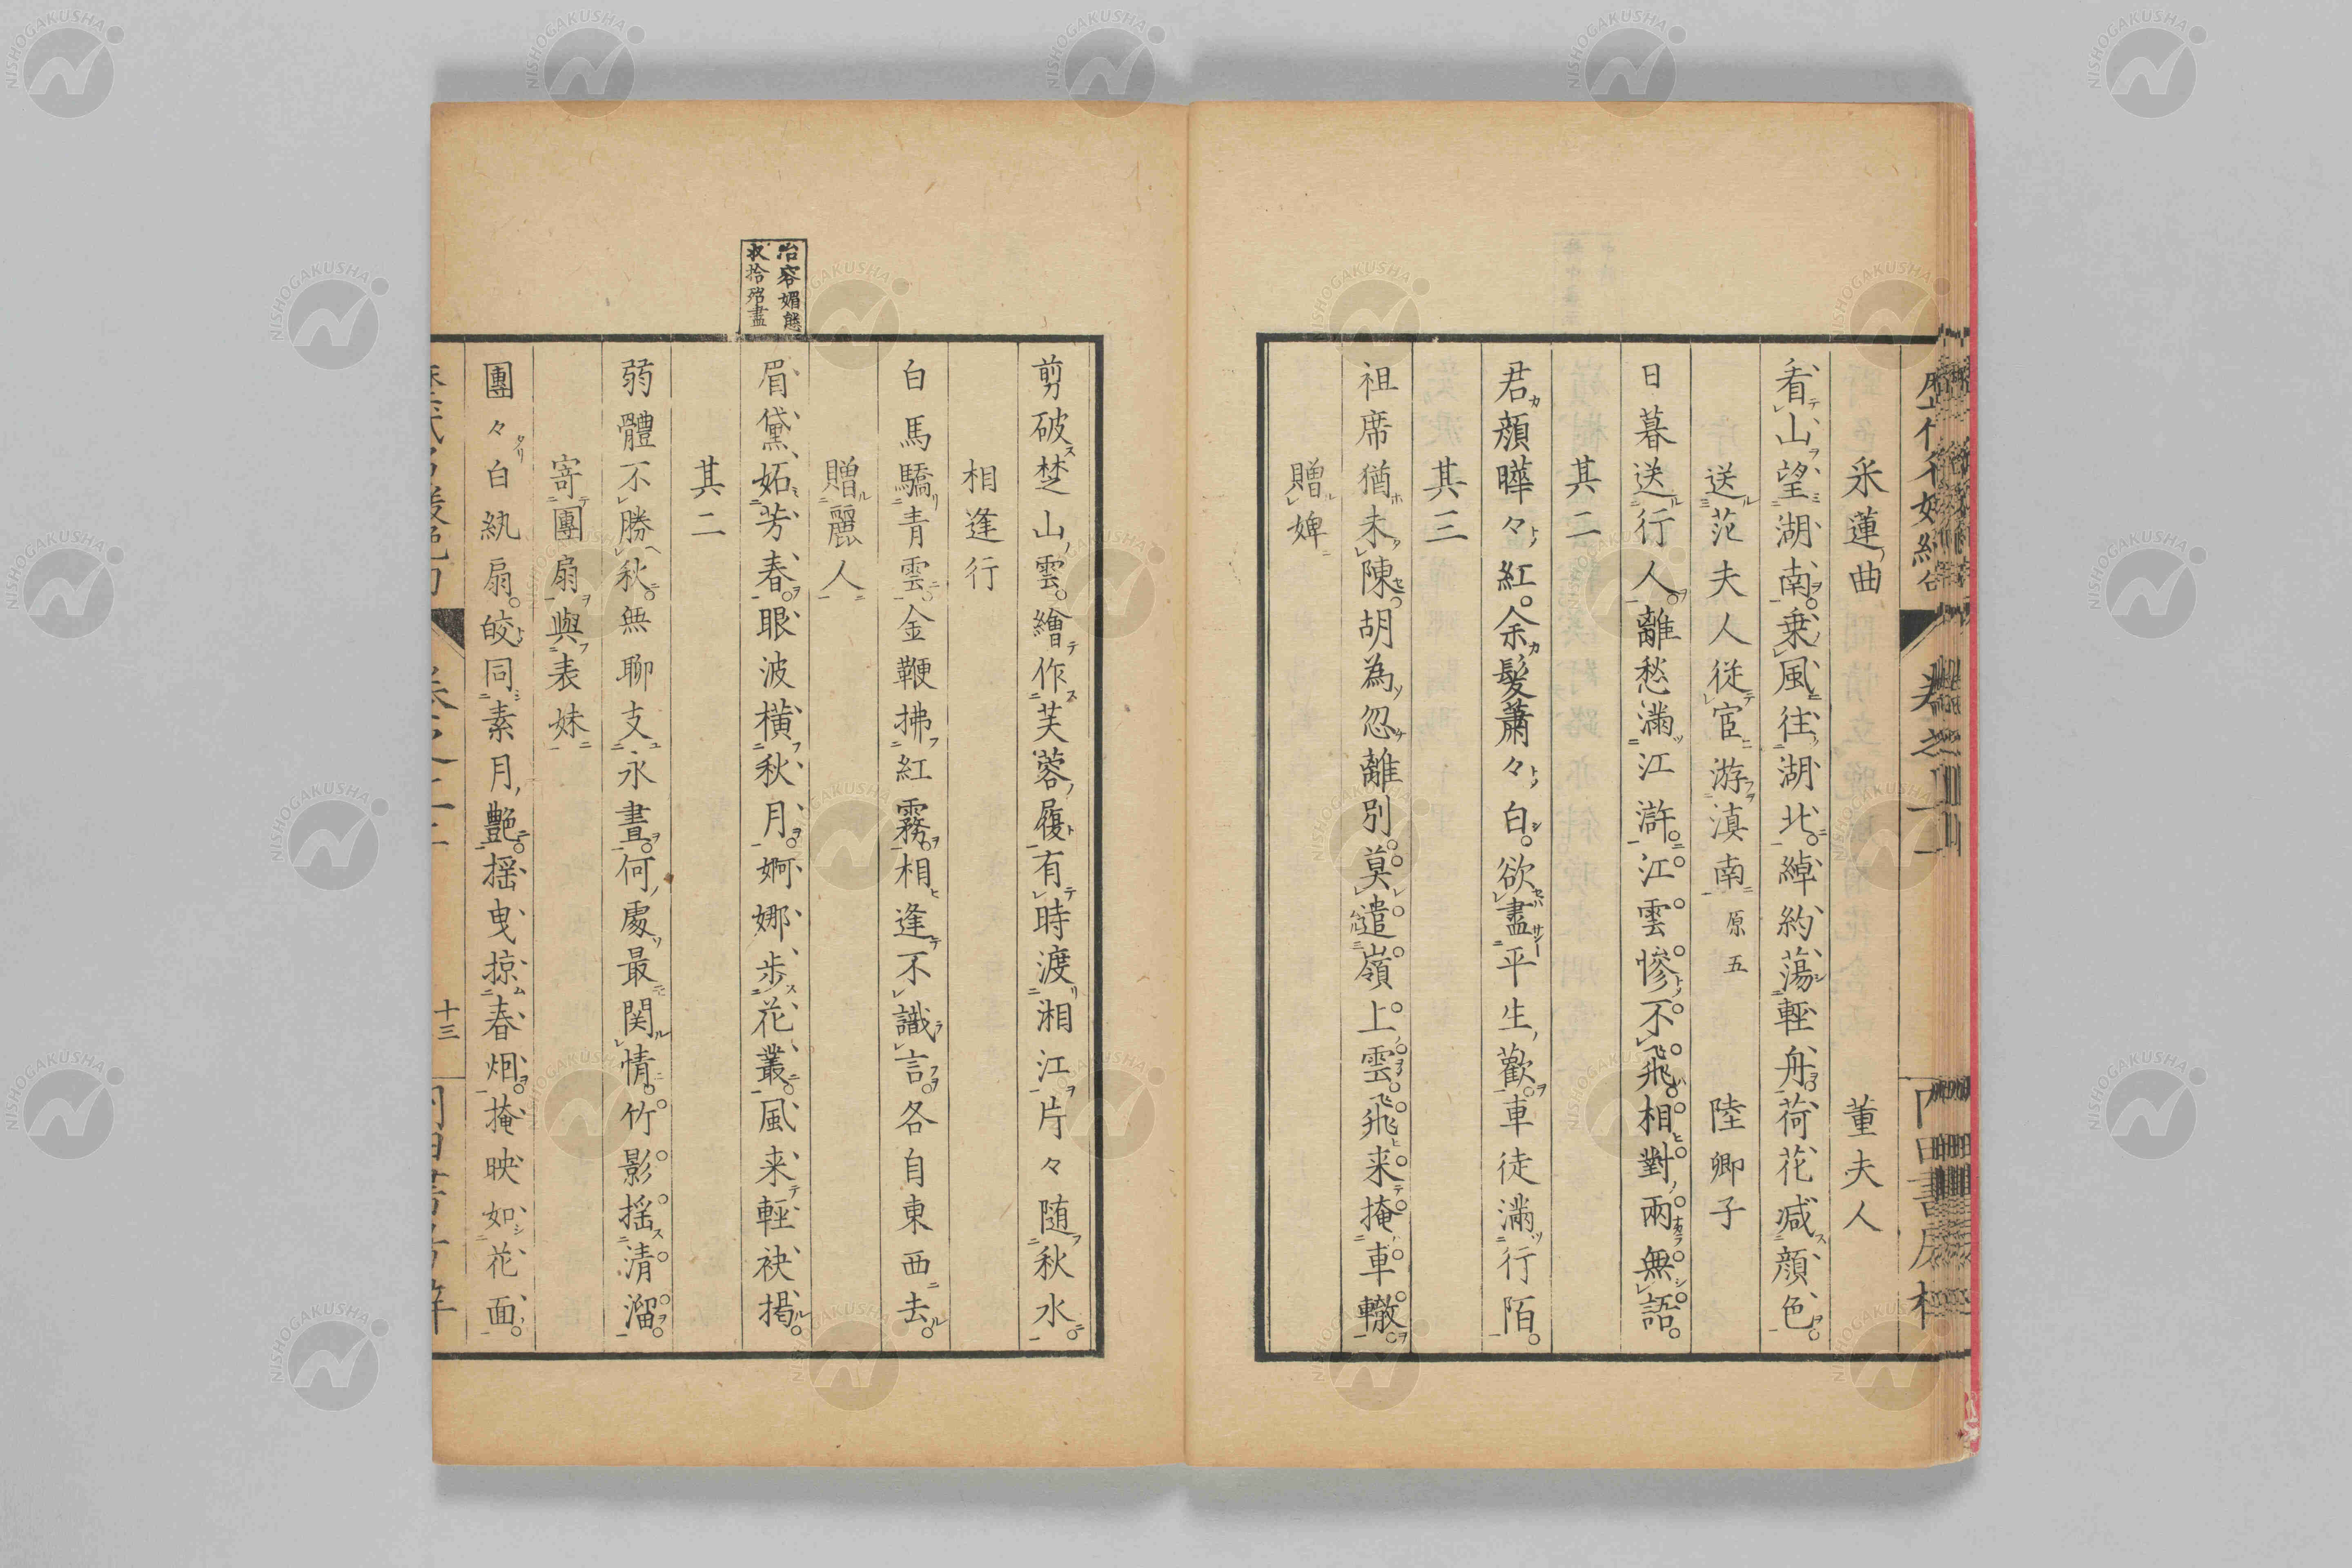 采蓮曲　董夫人
看山望湖南乗風往湖北綽約蕩輕舟荷花減顔色
送范夫人従宦游滇南原五　陸卿子
日暮送行人離愁滿江滸江雲慘不飛相對兩無語
其二
君顔曄々紅余髮蕭々白欲盡平生歡車徒滿行陌
其三
祖席猶未陳胡為忽離別莫遣嶺上雲飛来掩車轍
贈婢
剪破楚山雲繪作芙蓉履有時渡湘江片々随秋水
相逢行
白馬驕青雲金鞭拂紅霧相逢不識言各自東西去
贈麗人
冶容媚態
収拾殆盡
眉黛妬芳春眼波横秋月婀娜歩花叢風来輕袂掲
其二
弱體不勝秋無聊支永晝何處最関情竹影揺清溜
寄團扇與表妹
團々白紈扇皎同素月艶揺曳掠春烟掩映如花面
十三
NISHOGAKUSHA